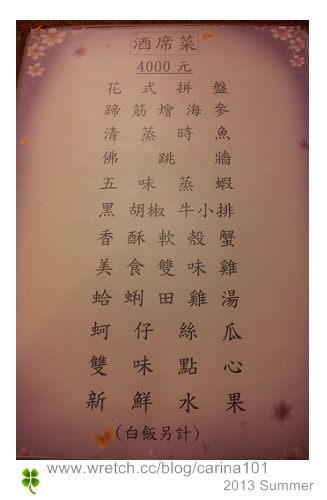 酒席菜
4000 元
花式拼盤
蹄筋燴海參
清蒸時魚
佛跳牆
五味蒸蝦
黑胡椒牛小排
香酥軟殼蟹
美食雙味雞
蛤蜊田雞湯
蚵仔絲瓜
雙味點心
新鮮水果
(白飯另計)
www.wretch.cc/blog/carina101
2013 Summer